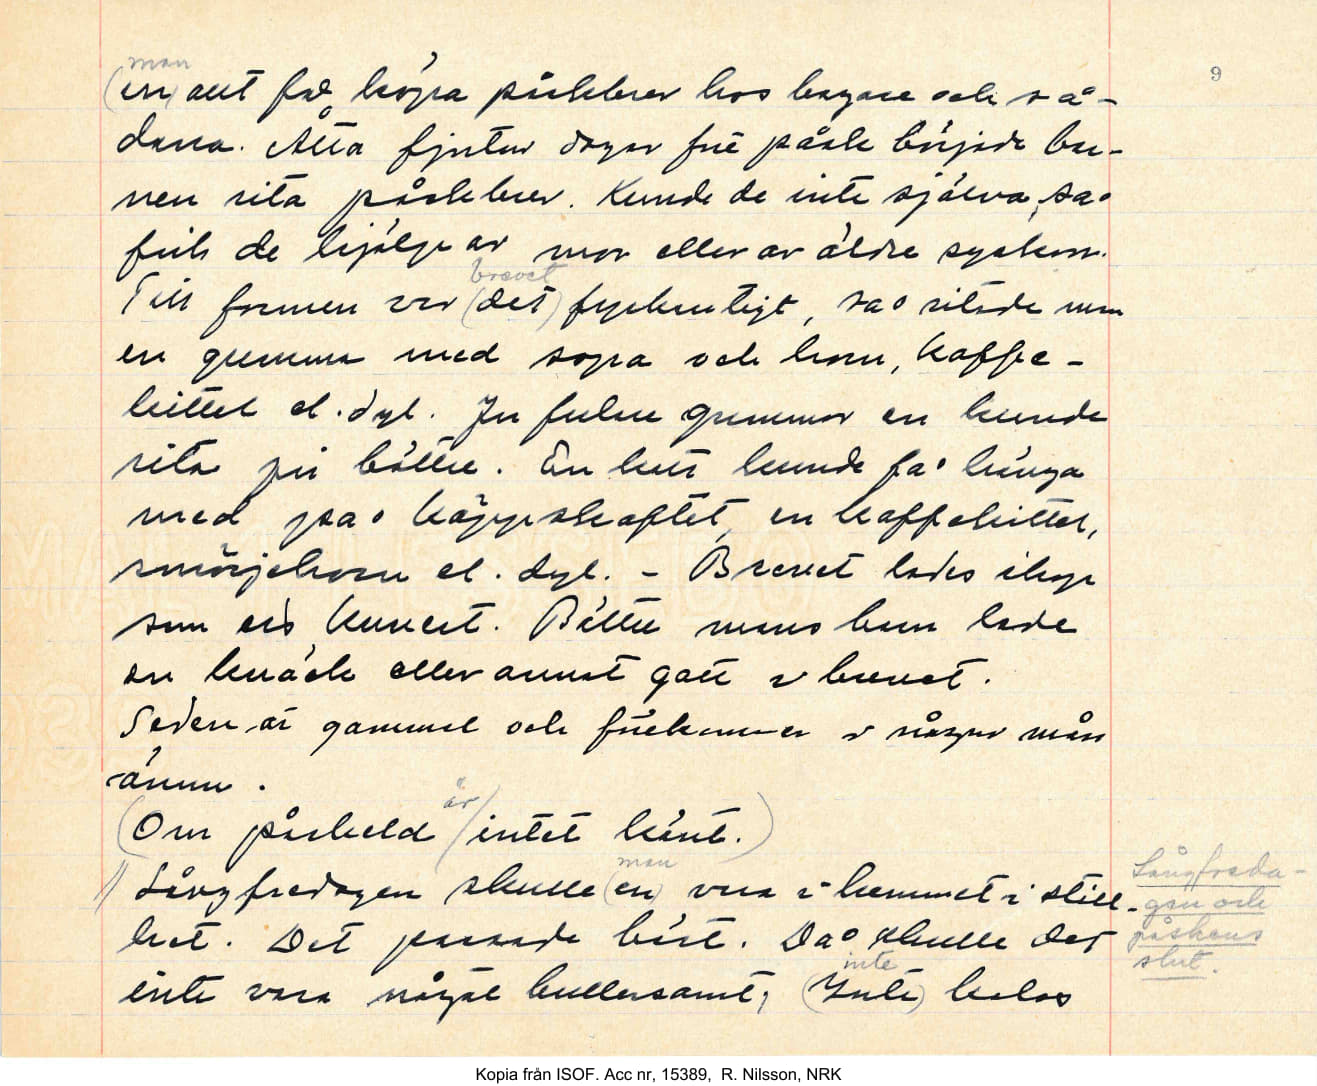 9
man
(en) att få köpa påskbrev hos bagare och så-
dana. Åtta fjorton dagar före påsk började bar-
nen rita påskbrev. Kunde de inte själva, så
fick de hjälp av mor eller av äldre syskon.
brevet
Till formen var (det) fyrkantigt, så ritade man
en gumma med sopa och horn, kaffe-
kittel el. dyl. Ju fulare gummor en kunde
rita ju bättre. En katt kunde få hänga
med på käppskaftet, en kaffekittel,
smörjehorn el. dyl. - Brevet lades ihop
som ett kuvert. Bättre mans barn lade
en knäck eller annat gott i brevet.
Seden är gammal och förekommer i någon mån
ännu.
är
(Om påskeld / intet känt.)
man
Långfredagen skulle (en) vara i hemmet i still-
het. Det passade bäst. Då skulle det
inte
inte vara något bullersamt, (Inte) kalas
Långfreda-
gen och
påskens
slut.
Kopia från ISOF. Acc nr, 15389, R. Nilsson, NRK